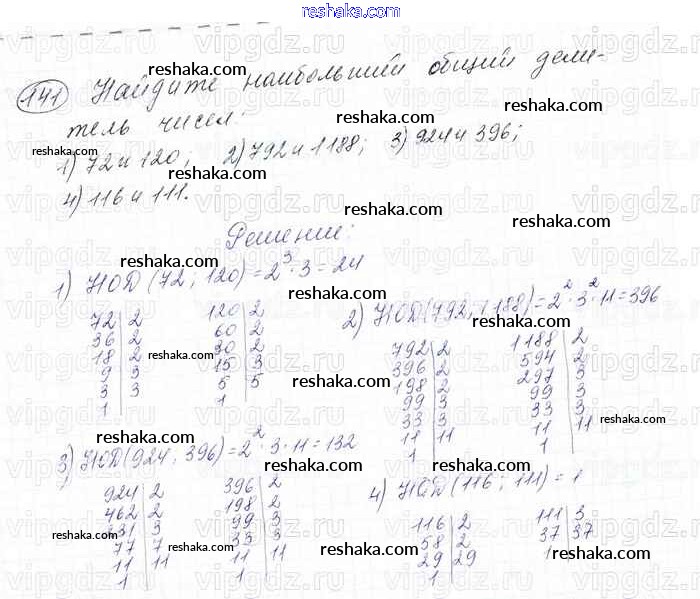 141 Найдите наибольший общий дели-
тель чисел:
1) 72 и 120; 2) 792 и 1188; 3) 924 и 396;
4) 116 и 111.
Решение:
1) НОД (72; 120) = 2³ · 3 = 24
72 | 2
36 | 2
18 | 2
9 | 3
3 | 3
1
120 | 2
60 | 2
30 | 2
15 | 3
5 | 5
1
2) НОД (792; 1188) = 2² · 3² · 11 = 396
792 | 2
396 | 2
198 | 2
99 | 3
33 | 3
11 | 11
1
1188 | 2
594 | 2
297 | 3
99 | 3
33 | 3
11 | 11
1
3) НОД (924; 396) = 2² · 3 · 11 = 132
924 | 2
462 | 2
231 | 3
77 | 7
11 | 11
1
396 | 2
198 | 2
99 | 3
33 | 3
11 | 11
1
4) НОД (116; 111) = 1
116 | 2
58 | 2
29 | 29
1
111 | 3
37 | 37
1
reshaka.com
vipgdz.ru